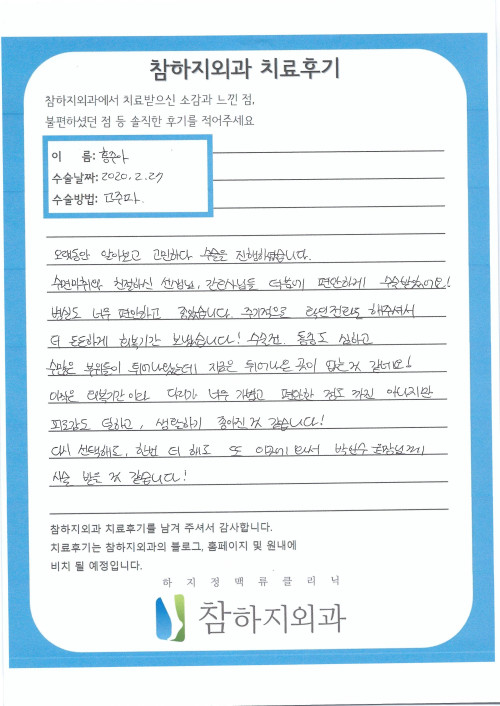 참하지외과 치료후기
참하지외과에서 치료받으신 소감과 느낀 점,
불편하셨던 점 등 솔직한 후기를 적어주세요
이 름: 홍준아
수술날짜: 2020. 2. 27
수술방법: 고주파.
오랫동안 알아보고 고민하다 수술을 진행하였습니다.
수면마취와 친절하신 선생님, 간호사님들 덕분에 편안하게 수술받았어요!
병실도 너무 편안하고 좋았습니다. 주기적으로 해주셔서
더 든든하게 회복기간 보냈습니다! 수술전. 통증도 심하고
수많은 부위들이 튀어나왔는데 지금은 튀어나온 곳이 없는 것 같아요!
아직은 회복기간이라 다리가 너무 가볍고 편안한 정도 까진 아니지만
피로감도 덜하고, 생활하기 좋아진 것 같습니다!
다시 선택해도, 한번 더 해도 또 이곳에 와서 박인수 원장님께
시술 받을 것 같습니다!
참하지외과 치료후기를 남겨 주셔서 감사합니다.
치료후기는 참하지외과의 블로그, 홈페이지 및 원내에
비치 될 예정입니다.
하지정맥류클리닉
참하지외과